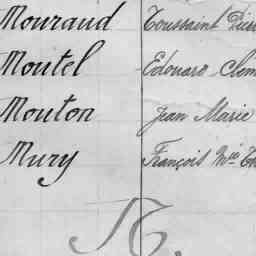 Mouraud Toussaint
Moutel Edouard
Mouton Jean Marie
Mury François
N.